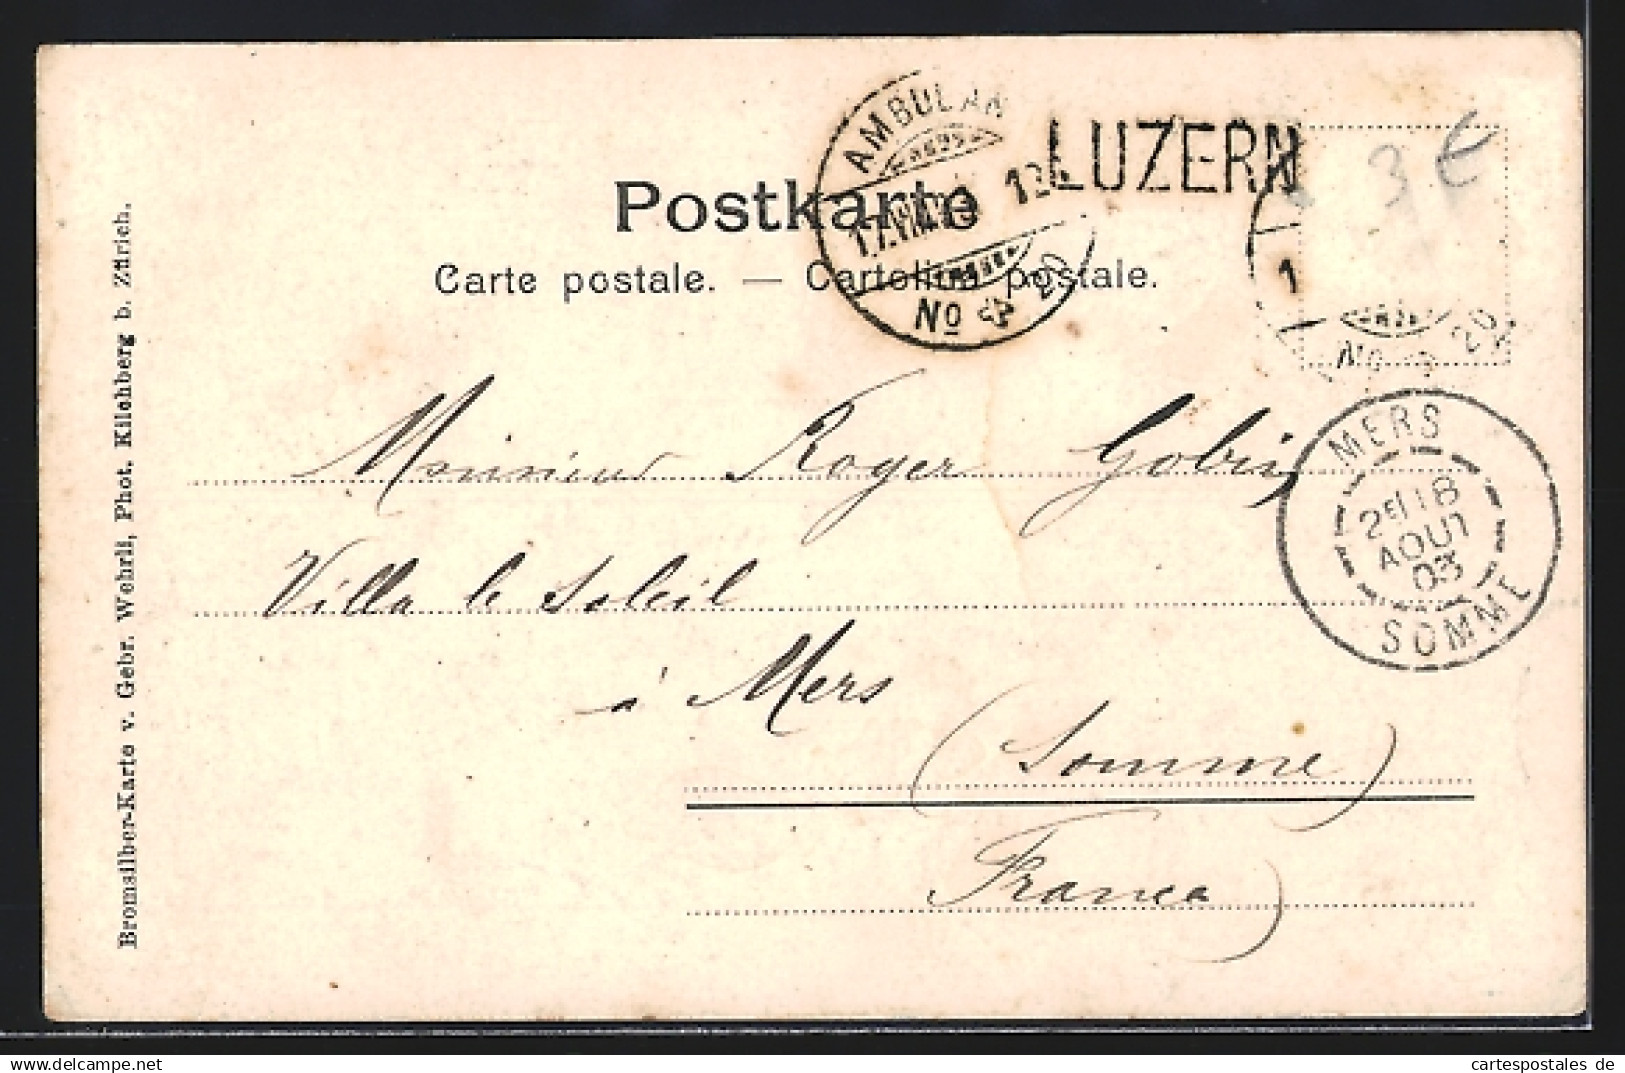 AMBULAN
LUZERN
3 €
Postkarte
Carte postale. — Cartolina postale.
No 20
1
No 20
MERS
2E 18
AOUT
03
SOMME
Monsieur Roger Gobin
Villa le Soleil
à Mers
(Somme)
France)
Bromsilber-Karte v. Gebr. Wehrli, Phot. Kilchberg b. Zürich.
cartespostales de